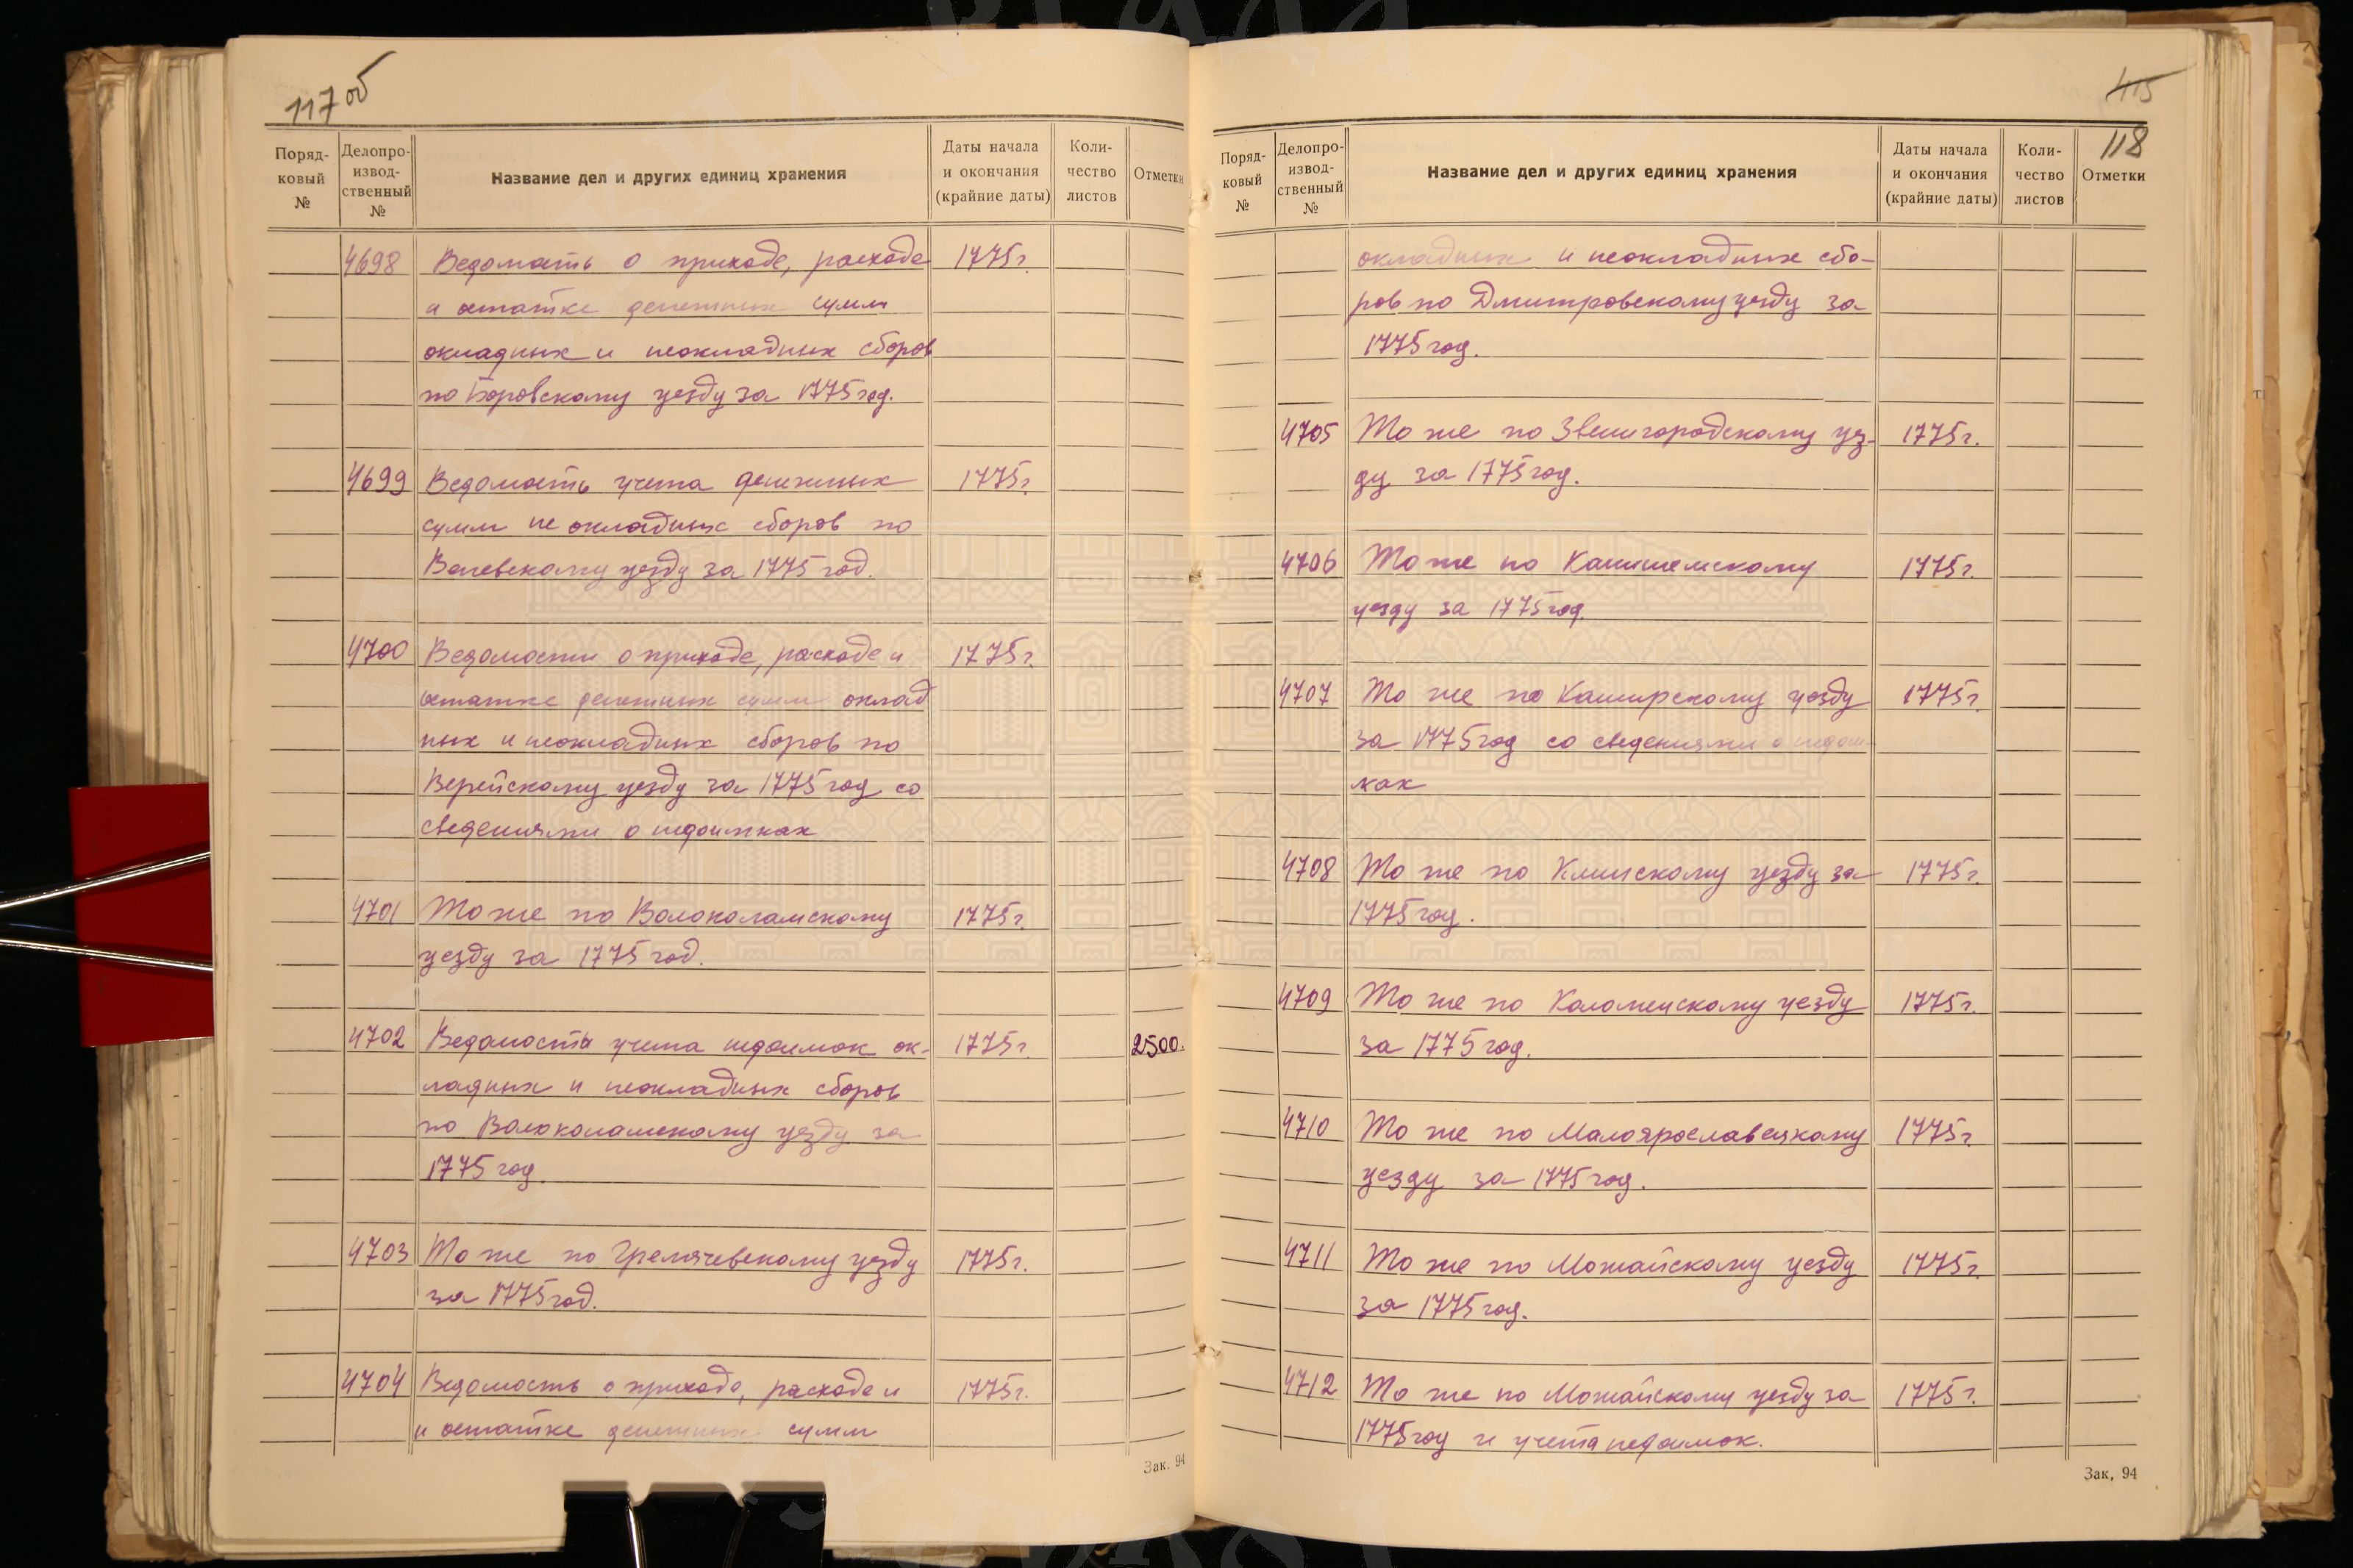 117 об
Поряд-
ковый
№
Делопро-
извод-
ственный
№
Название дел и других единиц хранения
Даты начала
и окончания
(крайние даты)
Коли-
чество
листов
Отметки
4698 Ведомость о приходе, расходе 1775 г.
и остатке денежных сумм
окладных и неокладных сборов
по Боровскому уезду за 1775 год.
4699 Ведомость учета денежных 1775 г.
сумм не окладных сборов по
уезду за 1775 год.
4700 Ведомости о приходе, расходе и 1775 г.
остатке денежных сумм оклад
ных и неокладных сборов по
Верейскому уезду за 1775 год со
сведениями о недоимках
4701 То же по Волоколамскому 1775 г.
уезду за 1775 год.
4702 Ведомость учета недоимок ок- 1775 г. 2500.
ладных и неокладных сборов
по Волоколамскому уезду за
1775 год.
4703 То же по Гремячевскому уезду 1775 г.
за 1775 год.
4704 Ведомость о приходе, расходе и 1775 г.
и остатке денежных сумм
Зак. 94
415
118
Поряд-
ковый
№
Делопро-
извод-
ственный
№
Название дел и других единиц хранения
Даты начала
и окончания
(крайние даты)
Коли-
чество
листов
Отметки
окладных и неокладных сбо-
ров по Дмитровскому уезду за
1775 год.
4705 То же по Звенигородскому уез- 1775 г.
ду за 1775 год.
4706 То же по 1775 г.
уезду за 1775 год.
4707 То же по Каширскому уезду 1775 г.
за 1775 год со сведениями о недоим
ках
4708 То же по Клинскому уезду за 1775 г.
1775 год.
4709 То же по Коломенскому уезду 1775 г.
за 1775 год.
4710 То же по Малоярославецкому 1775 г.
уезду за 1775 год.
4711 То же по Можайскому уезду 1775 г.
за 1775 год.
4712 То же по Можайскому уезду за 1775 г.
1775 год и учета недоимок.
Зак, 94